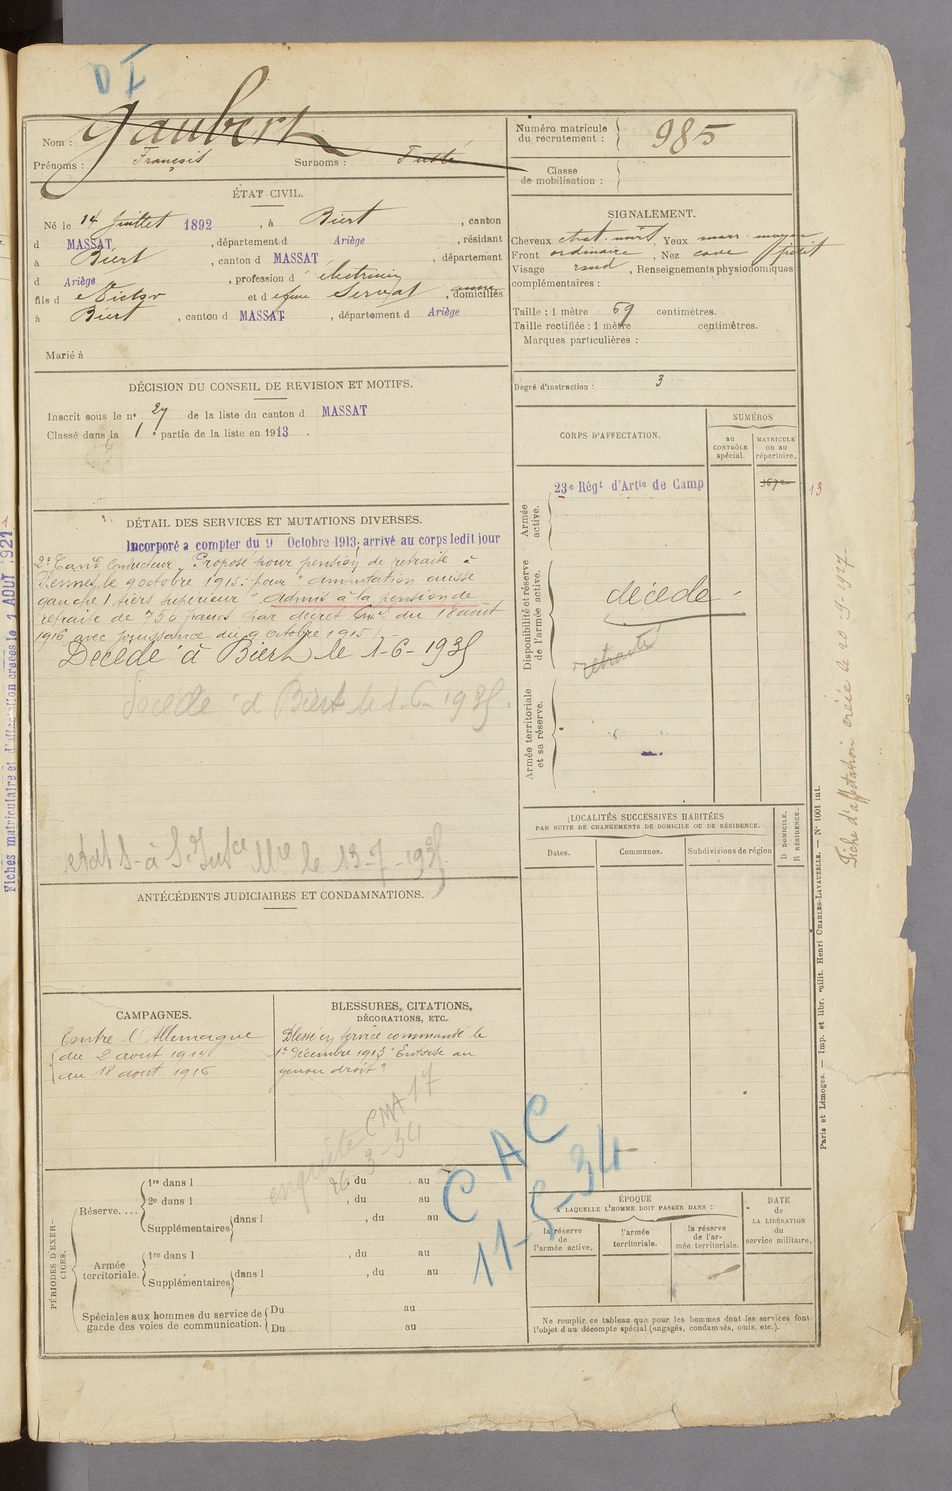 D I
Nom : Gaubert
Prénoms : François Surnoms :
ÉTAT CIVIL.
Né le 14 Juillet 1892, à Biert, canton
d MASSAT, département d Ariège, résidant
à Biert, canton d MASSAT, département
d Ariège, profession d électricien
fils de Victor et de feue Servat, domiciliés
à Biert, canton d MASSAT, département d Ariège
Marié à
DÉCISION DU CONSEIL DE REVISION ET MOTIFS.
Inscrit sous le n° 27 de la liste du canton d MASSAT
Classé dans la 1 partie de la liste en 1913.
DÉTAIL DES SERVICES ET MUTATIONS DIVERSES.
Incorporé a compter du 9 Octobre 1913, arrivé au corps ledit jour
2e Canr Conducteur. Proposé pour pension de retraite à
Rennes, le 9 octobre 1915: pour "amputation cuisse
gauche 1 tiers supérieur" admis à la pension de
retraite de 750 francs par décret du 18 août
1916 avec jouissance du 9 octobre 1915.
Décédé à Biert le 1-6-1935
Décédé à Biert le 1-6-1935.
le 13-7-1935.
ANTÉCÉDENTS JUDICIAIRES ET CONDAMNATIONS.
CAMPAGNES.
Contre l'Allemagne
du 2 aout 1914
au 18 aout 1916
BLESSURES, CITATIONS,
DÉCORATIONS, ETC.
Blessé en service commandé le
1er Décembre 1913 "Entorse au
genou droit"
enquête CMA 17
26-3-34
CAC
11-5-34
PÉRIODES D'EXERCICES.
Réserve....
1re dans l , du au
2e dans l , du au
Supplémentaires dans l , du au
Armée territoriale.
1re dans l , du au
Supplémentaires dans l , du au
Spéciales aux hommes du service de garde des voies de communication.
Du au
Du au
Numéro matricule du recrutement : 985
Classe de mobilisation :
SIGNALEMENT.
Cheveux chat. noirs, Yeux marr. moyen
Front ordinaire, Nez cave petit
Visage rond, Renseignements physionomiques
complémentaires :
Taille : 1 mètre 69 centimètres.
Taille rectifiée : 1 mètre centimètres.
Marques particulières :
Degré d'instruction : 3
CORPS D'AFFECTATION.
NUMÉROS
au CONTRÔLE spécial.
MATRICULE ou au répertoire.
Armée active.
23e Régt d'Artie de Camp
13
Disponibilité et réserve de l'armée active.
décédé
retraité
Armée territoriale et sa réserve.
LOCALITÉS SUCCESSIVES HABITÉES
PAR SUITE DE CHANGEMENTS DE DOMICILE OU DE RÉSIDENCE.
Dates. Communes. Subdivisions de région
D DOMICILE,
R RÉSIDENCE.
ÉPOQUE
A LAQUELLE L'HOMME DOIT PASSER DANS :
la réserve de l'armée active.
l'armée territoriale.
la réserve de l'armée territoriale.
DATE de LA LIBÉRATION du service militaire.
Ne remplir ce tableau que pour les hommes dont les services font
l'objet d'un décompte spécial (engagés, condamnés, omis, etc.).
Paris et Limoges. — Imp. et libr. milit. Henri CHARLES-LAVAUZELLE. — N° 1001 int.
Fiche d'affectation créée le 20-9-1927
Fiches matriculaire et d'affectation créées le 1 AOUT 1921